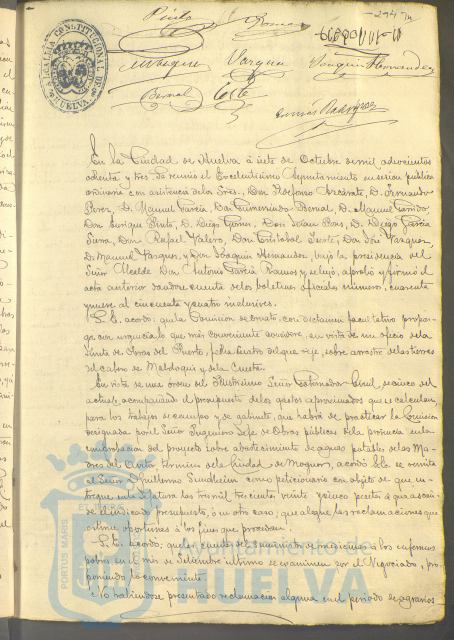 294
Pinto
Gomez
Vazquez
Joaquin Hernandez
Bernal
Tomás Rodriguez
ALCALDIA CONSTITUCIONAL DE HUELVA
En la Ciudad de Huelva á siete de Octubre de mil ochocientos
ochenta y tres se reunió el Excelentisimo Ayuntamiento en sesion publica
ordinaria con asistencia de los Sres. Don Ildefonso Arcarate, D. Fernando
Perez, D. Manuel Garcia, Don Gumersindo Bernal, D. Manuel Garrido,
Don Enrique Pinto, D. Diego Gomez, Don Juan Pons, D. Diego Garcia
Sierra, Don Rafael Valero, Don Cristobal Fuerte, Don José Vazquez,
D. Manuel Vazquez, y Don Joaquin Hernandez, bajo la presidencia del
Señor Alcalde Don Antonio Garcia Ramos y se leyó, aprobó y firmó el
acta anterior dandose cuenta de los boletines oficiales número, cuarenta
y nueve al cincuenta y cuatro inclusives.
S.E. acordó: que la Comision de ornato, con dictamen facultativo propon-
ga con urgencia lo que más conveniente considere, en vista de un oficio de la
Junta de Obras del Puerto, fecha cuatro del que rije, sobre arrastre de las tierras
del cabezo de Mondaqui y de la Cuesta.
En vista de una orden del Ilustrisimo Señor Gobernador Civil, de cinco del
actual, acompañando el presupuesto de los gastos aproximados que se calculan,
para los trabajos de campo y de gabinete, que habrá de practicar la Comision
designada por el Señor Ingeniero Jefe de Obras públicas de la provincia en la
comprobacion del proyecto sobre abastecimiento de aguas potables de las Ma-
dres del Avitor termino de la Ciudad de Moguer, acordó S.E. se remita
al Señor D. Guillermo Sundheim como peticionario con objeto de que in-
grese en la Jefatura las tres mil trescientas veinte y cinco pesetas á que ascien-
de el indicado presupuesto, ó en otro caso, que alegue las reclamaciones que
estime oportunas á los fines que procedan.
S.E. acordó: que la cuenta del suministro de medicinas á los enfermos
pobres en el mes de Setiembre ultimo se examinen por el Negociado, pro-
poniendo lo conveniente.
No habiendose presentado reclamacion alguna en el periodo de agravios
PORTUS MARIS
Ayuntamiento de
HUELVA